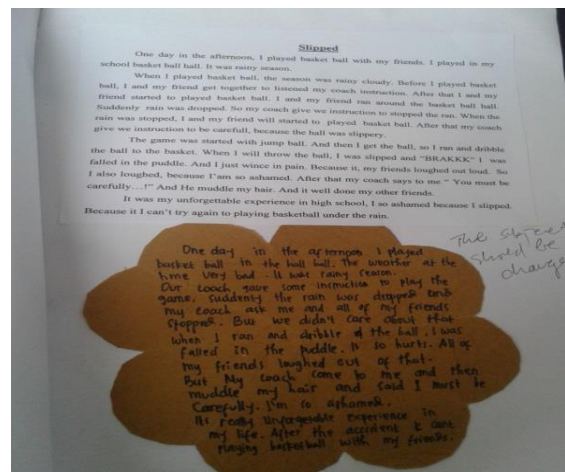 Slipped
One day in the afternoon, I played basket ball with my friends. I played in my
school basket ball hall. It was rainy season.
When I played basket ball, the season was rainy cloudy. Before I played basket
ball, I and my friend get together to listened my coach instruction. After that I and my
friend started to played basket ball. I and my friend ran around the basket ball hall.
Suddenly rain was dropped. So my coach give we instruction to stopped the ran. When the
rain was stopped, I and my friend will started to played basket ball. After that my coach
give we instruction to be carefull, because the hall was slippery.
The game was started with jump ball. And then I get the ball, so I ran and dribble
the ball to the basket. When I will throw the ball, I was slipped and "BRAKKK" I was
falled in the puddle. And I just wince in pain. Because it, my friends loughed out loud. So
I also loughed, because I'am so ashamed. After that my coach says to me " You must be
carefully...!" And He muddle my hair. And it well done my other friends.
It was my unforgettable experience in high school, I so ashamed because I slipped.
Because it I can't try again to playing basketball under the rain.
One day in the afternoon I played
basket ball in the hall ball. The weather at the
time very bad. It was rainy season.
Our coach gave some instruction to play the
game. suddenly the rain was dropped and
my coach ask me and all of my friends
stopped. But we didn't care about that
when I ran and dribble the ball. I was
falled in the puddle. It so hurts. All of
my friends loughed out of that.
But My coach come to me and then
muddle my hair and said I must be
Carefully. I'm so ashamed.
Its really Unforgetable experience in
my life. After the accident I cant
playing basketball with my friends.
The
should be
change